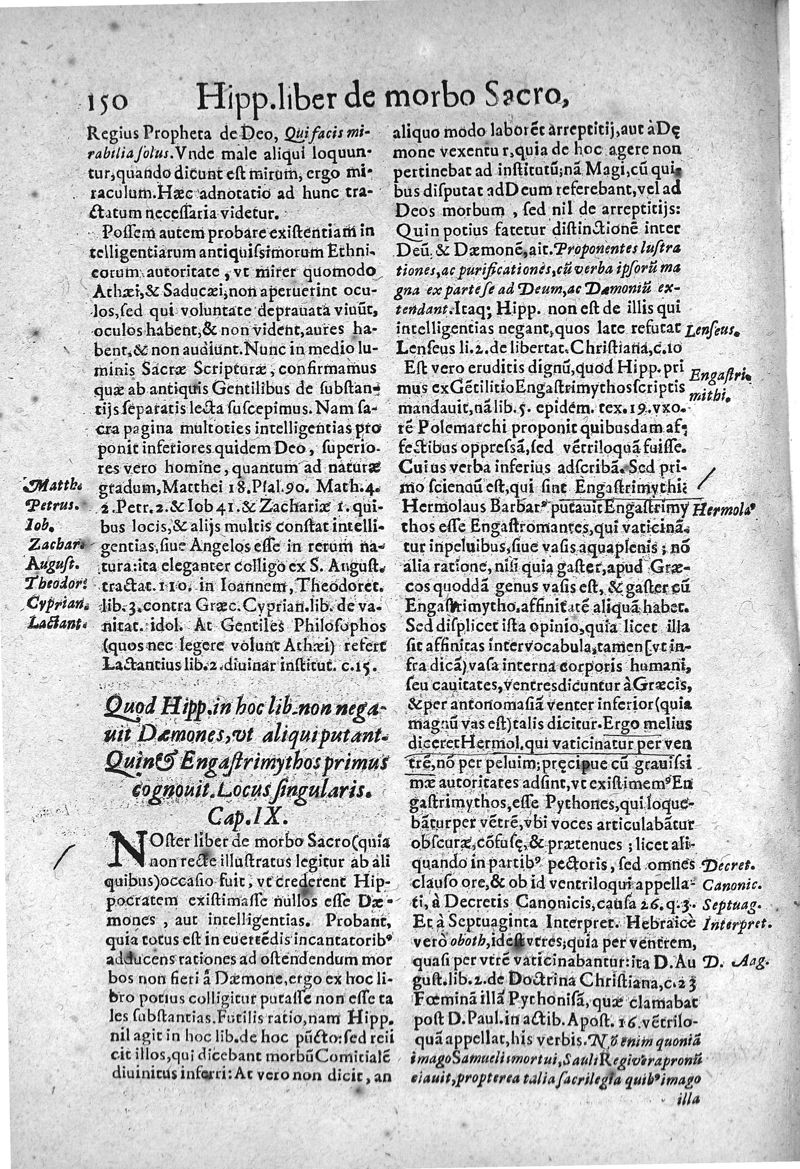 150 Hipp.liber de morbo Sacro,
Regius Propheta de Deo, Qui facis mi-
rabilia solus. Vnde male aliqui loquun-
tur, quando dicunt est mirum, ergo mi-
raculum. Hæc adnotatio ad hunc tra-
ctatum necessaria videtur.
Possem autem probare existentiam in
telligentiarum antiquissimorum Ethni
corum autoritate, vt mirer quomodo
Athæi, & Saducæi, non aperuerint ocu-
los, sed qui voluntate deprauata viuũt,
oculos habent, & non vident, aures ha-
bent, & non audiunt. Nunc in medio lu-
minis Sacræ Scripturæ, confirmamus
quæ ab antiquis Gentilibus de substan-
tijs separatis lecta suscepimus. Nam sa-
cra pagina multoties intelligentias pro
ponit inferiores quidem Deo, superio-
res vero homine, quantum ad naturæ
gradum, Matthei 18. Psal. 90. Math. 4.
2. Petr. 2. & Iob 41. & Zachariæ 1. qui-
bus locis, & alijs multis constat intelli-
gentias, siue Angelos esse in rerum na-
tura: ita eleganter colligo ex S. August.
tractat. 110. in Ioannem, Theodoret.
lib. 3. contra Græc. Cyprian. lib. de va-
nitat. idol. At Gentiles Philosophos
(quos nec legere volunt Athæi) refert
Lactantius lib. 2. diuinar institut. c. 15.
Matth.
Petrus.
Iob.
Zachar.
August.
Theodor.
Cyprian.
Lactant.
Quod Hipp. in hoc lib. non nega-
uit Dæmones, vt aliqui putant.
Quin & Engastrimythos primus
cognouit. Locus singularis.
Cap. IX.
NOster liber de morbo Sacro (quia
non recte illustratus legitur ab ali
quibus) occasio fuit, vt crederent Hip-
pocratem existimasse nullos esse Dæ-
mones, aut intelligentias. Probant,
quia totus est in euertẽdis incantatorib9
adducens rationes ad ostendendum mor
bos non fieri â Dæmone, ergo ex hoc li-
bro potius colligitur putasse non esse ta
les substantias. Futilis ratio, nam Hipp.
nil agit in hoc lib. de hoc pũcto: sed reii
cit illos, qui dicebant morbũ Comitialẽ
diuinitus inferri: At vero non dicit, an
aliquo modo laborẽt arreptitij, aut à Dę
mone vexentur, quia de hoc agere non
pertinebat ad institutũ; nã Magi, cũ qui
bus disputat ad Deum referebant, vel ad
Deos morbum, sed nil de arreptitijs:
Quin potius fatetur distinctionẽ inter
Deũ, & Dæmonẽ, ait. Proponentes lustra
tiones, ac purificationes, cũ verba ipsorũ ma
gna ex parte se ad Deum, ac Dæmoniũ ex-
tendant. Itaq; Hipp. non est de illis qui
intelligentias negant, quos late refutat
Lenseus li. 2. de libertat. Christiana, c. 10
Est vero eruditis dignũ, quod Hipp. pri
mus ex Gẽtilitio Engastrimythos scriptis
mandauit, nã lib. 5. epidẽm. tex. 19. vxo-
rẽ Polemarchi proponit quibusdam af-
fectibus oppressã, sed vẽtriloquã fuisse.
Cuius verba inferius adscribã. Sed pri-
mo sciendũ est, qui sint Engastrimythi:
Hermolaus Barbar9 putauit Engastrimy
thos esse Engastromantes, qui vaticinã-
tur in peluibus, siue vasis aqua plenis; nõ
alia ratione, nisi quia gaster, apud Græ-
cos quoddã genus vasis est, & gaster cũ
Engastrimytho, affinitatẽ aliquã habet.
Sed displicet ista opinio, quia licet illa
sit affinitas inter vocabula, tamen [vt in-
fra dicã) vasa interna corporis humani,
seu cauitates, ventres dicuntur à Græcis,
& per antonomasiã venter inferior (quia
magnũ vas est) talis dicitur. Ergo melius
diceret Hermol, qui vaticinatur per ven
trẽ, nõ per peluim; pręcipue cũ grauissi
mæ autoritates adsint, vt existimem9 En
gastrimythos, esse Pythones, qui loque-
bãtur per vẽtrẽ, vbi voces articulabãtur
obscuræ, cõfusę, & prætenues; licet ali-
quando in partib9 pectoris, sed omnes
clauso ore, & ob id ventriloqui appella-
ti, à Decretis Canonicis, causa 26. q. 3.
Et à Septuaginta Interpret. Hebraicè
vero oboth, idest vtres; quia per ventrem,
quasi per vtrẽ vaticinabantur: ita D. Au
gust. lib. 2. de Doctrina Christiana, c. 23
Fœminã illã Pythonisã, quæ clamabat
post D. Paul. in actib. Apost. 16. vẽtrilo-
quã appellat, his verbis. Nõ enim quoniã
imago Samuelis mortui, Sauli Regi vera pronũ
ciauit, propterea talia sacrilegia quib9 imago
illa
Lenseus.
Engastri-
mithi.
Hermola9
Decret.
Canonic.
Septuag.
Interpret.
D. Aug.